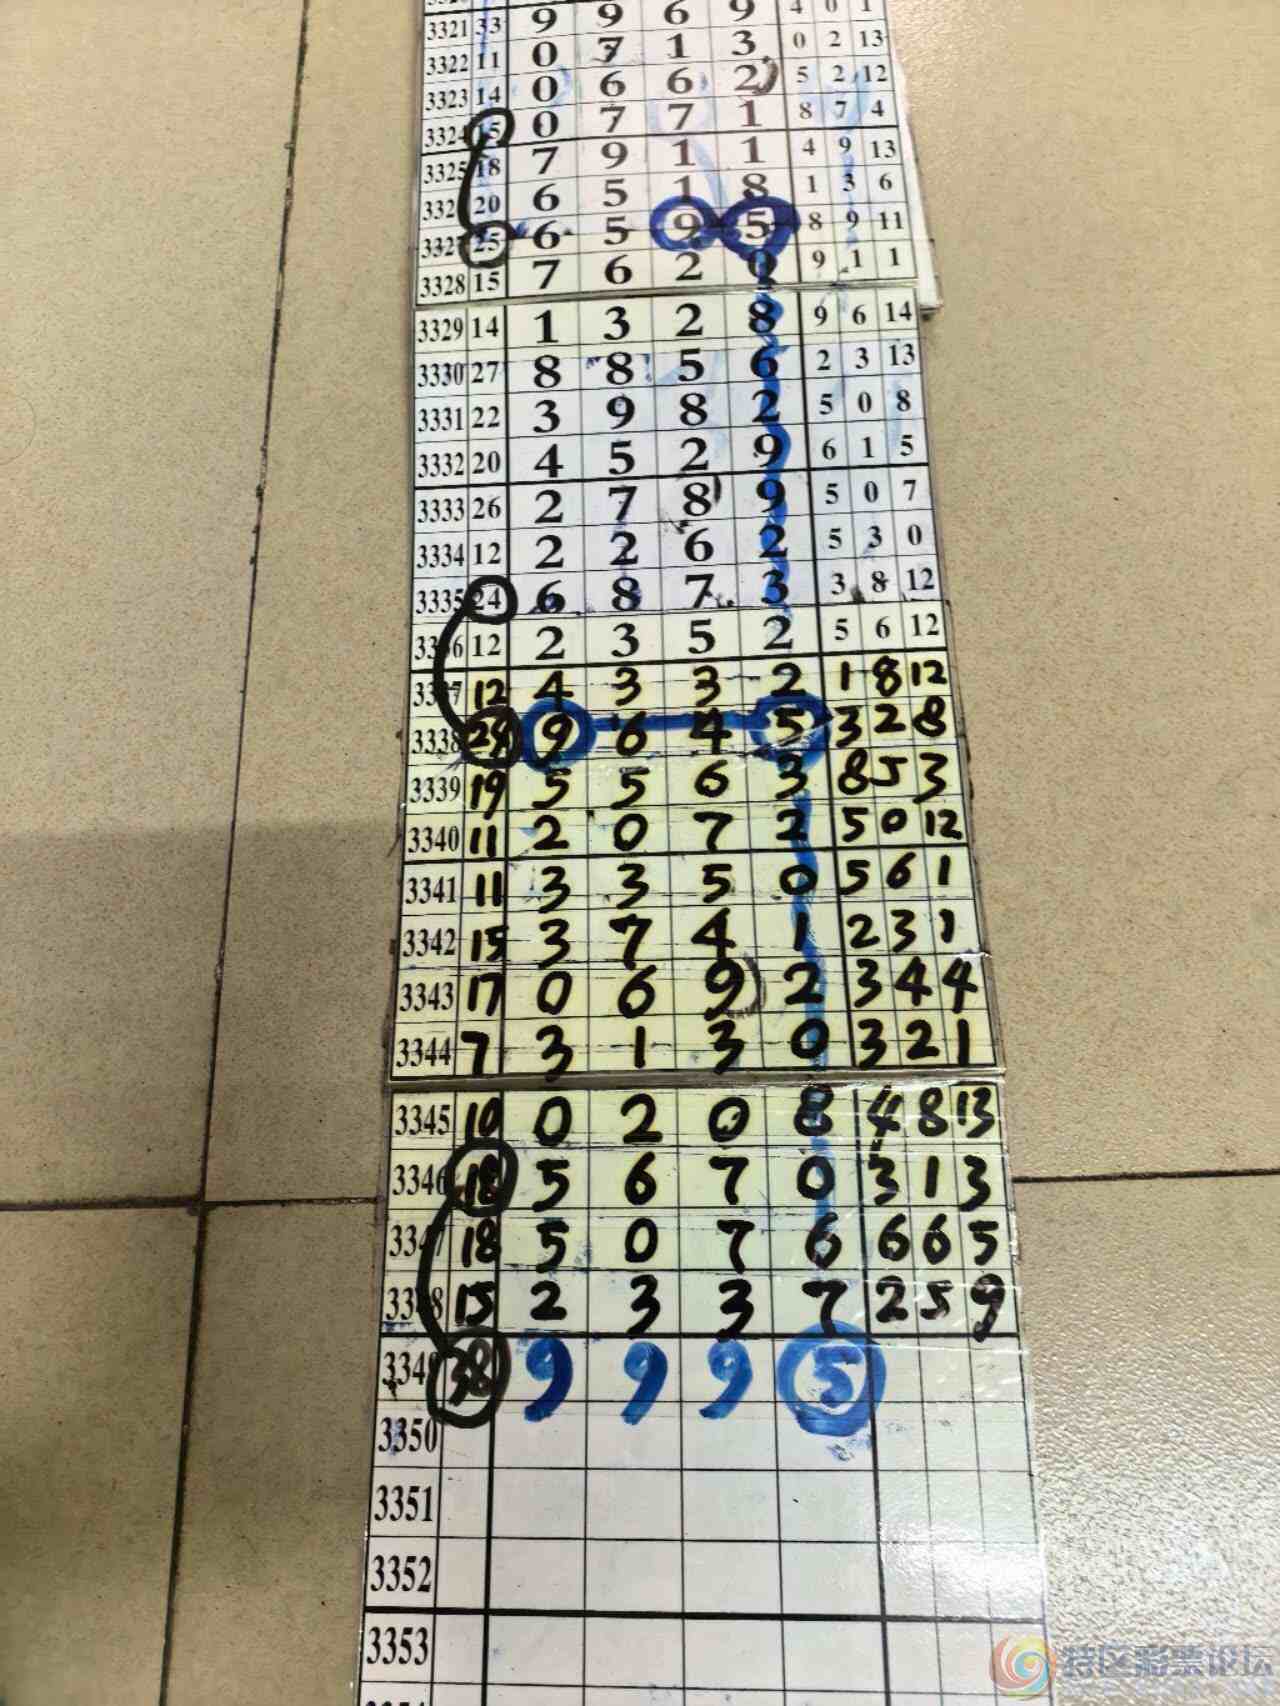 3321 33 9 9 6 9 4 0 1
3322 11 0 7 1 3 0 2 13
3323 14 0 6 6 2 5 2 12
3324 15 0 7 7 1 8 7 4
3325 18 7 9 1 1 4 9 13
332 20 6 5 1 8 1 3 6
3327 25 6 5 9 5 8 9 11
3328 15 7 6 2 0 9 1 1
3329 14 1 3 2 8 9 6 14
3330 27 8 8 5 6 2 3 13
3331 22 3 9 8 2 5 0 8
3332 20 4 5 2 9 6 1 5
3333 26 2 7 8 9 5 0 7
3334 12 2 2 6 2 5 3 0
3335 24 6 8 7 3 3 8 12
3336 12 2 3 5 2 5 6 12
3337 12 4 3 3 2 1 8 12
3338 24 9 6 4 5 3 2 8
3339 19 5 5 6 3 8 5 3
3340 11 2 0 7 2 5 0 12
3341 11 3 3 5 0 5 6 1
3342 15 3 7 4 1 2 3 1
3343 17 0 6 9 2 3 4 4
3344 7 3 1 3 0 3 2 1
3345 10 0 2 0 8 4 8 13
3346 18 5 6 7 0 3 1 3
3347 18 5 0 7 6 6 6 5
3348 15 2 3 3 7 2 5 9
3349 38 9 9 9 5
3350
3351
3352
3353
特区彩票论坛